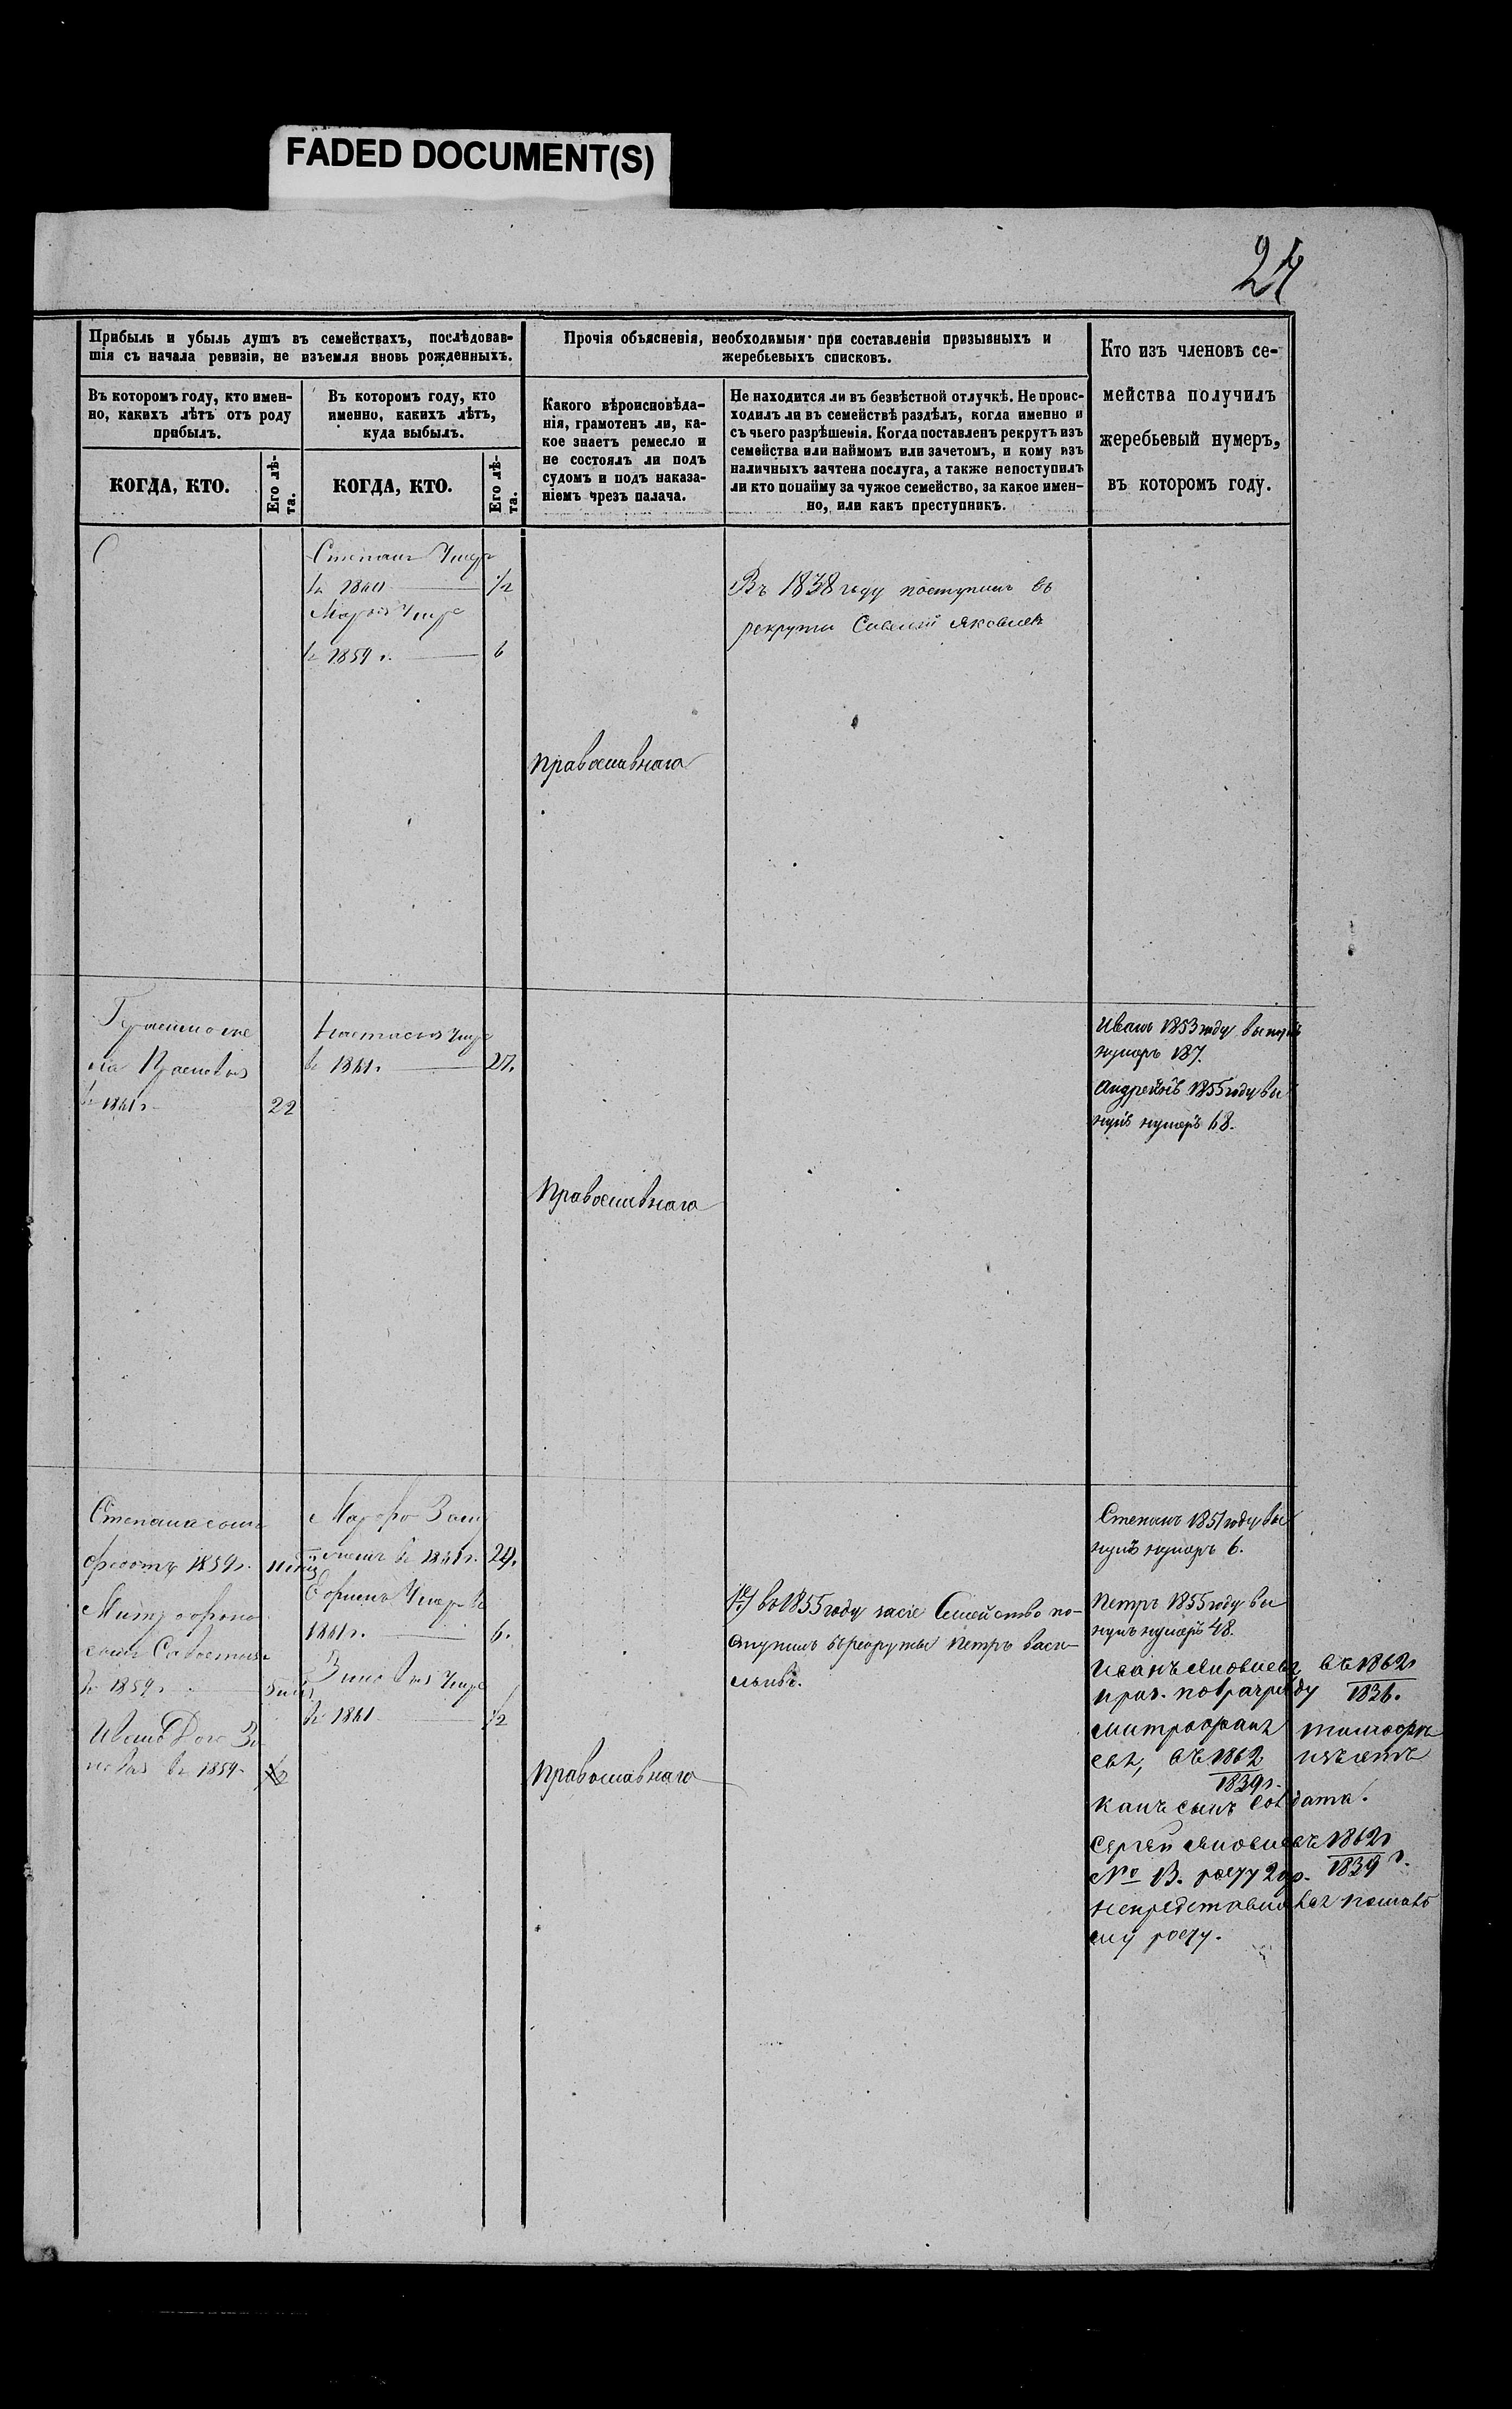 FADED DOCUMENT(S)
24
Прибыль и убыль душъ въ семействахъ, послѣдовав-
шія съ начала ревизіи, не изъемля вновь рожденныхъ.
Прочія объясненія, необходимыя при составленіи призывныхъ и
жеребьевыхъ списковъ.
Кто изъ членовъ се-
мейства получилъ
жеребьевый нумеръ,
въ которомъ году.
Въ которомъ году, кто имен-
но, какихъ лѣтъ отъ роду
прибылъ.
Въ которомъ году, кто
именно, какихъ лѣтъ,
куда выбылъ.
Какого вѣроисповѣда-
нія, грамотенъ ли, ка-
кое знаетъ ремесло и
не состоялъ ли подъ
судомъ и подъ наказа-
ніемъ чрезъ палача.
Не находится ли въ безвѣстной отлучкѣ. Не проис-
ходилъ ли въ семействѣ раздѣлъ, когда именно и
съ чьего разрѣшенія. Когда поставленъ рекрутъ изъ
семейства или наймомъ или зачетомъ, и кому изъ
наличныхъ зачтена послуга, а также непоступилъ
ли кто понайму за чужое семейство, за какое имен-
но, или какъ преступникъ.
КОГДА, КТО.
Его лѣ-
та.
КОГДА, КТО.
Его лѣ-
та.
Степанъ Умеръ
въ 1860 1/2
Марья Умре
въ 1859 г. 6
Въ 1838 году поступилъ въ
рекруты Савелий Яковлевъ
православнаго
Прасковья
в 1861 г 22
Настасья Умре
в 1861 г 27.
Иванъ 1853 году вынулъ
нумеръ 187.
Андрей въ 1855 году вы
нулъ нумеръ 68.
Православнаго
Степана сынъ
1859 г.
Митрофана
сынъ
в 1859 г
в 1859 1/2
Марфа Заму
в 1861 г. 29.
Умеръ в
1861 г. 6.
Зиновья Умре
в 1861 1/2
во 1855 году засіе Семейство по-
ступилъ в рекруты Петръ Васи-
льевъ.
Православнаго
Степанъ 1851 году вы
нулъ нумеръ 6.
Петръ 1855 году вы
нулъ нумеръ 48.
Иванъ Яковлевъ въ 1862 г
1836.
Митрофанъ Тимофе
евъ, въ 1862 изъятъ
1839 г.
какъ сынъ солдата.
Сергей Яковлевъ 1862 г
1839 г.
№ 13. росту 2 ар.
непредставленъ помало
му росту.